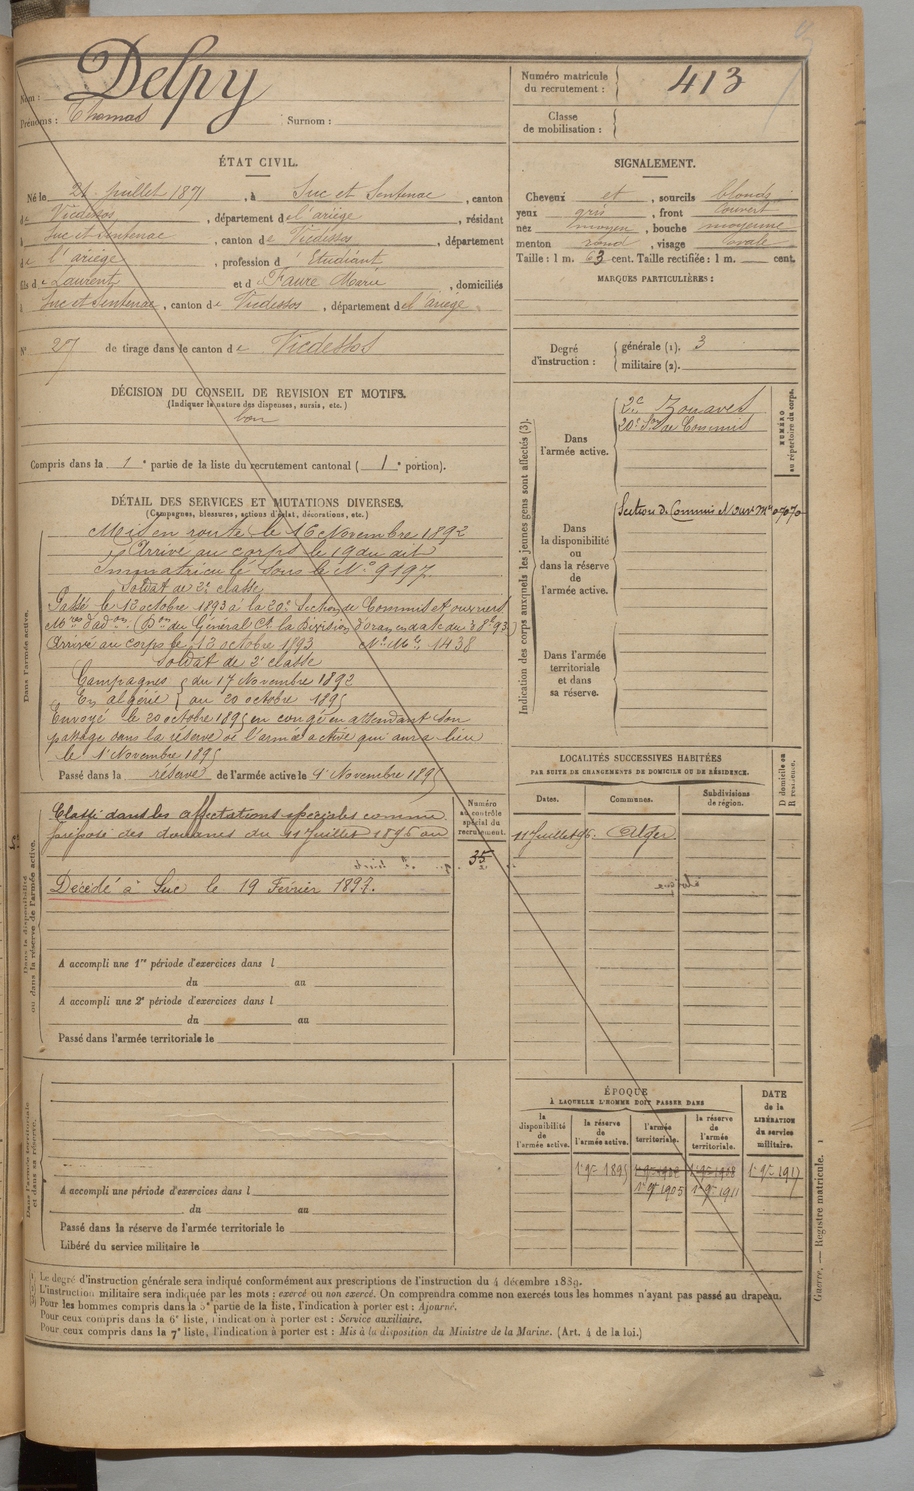 Nom : Delpy
Prénoms : Thomas Surnom :
Numéro matricule du recrutement : 413
Classe de mobilisation :
ÉTAT CIVIL.
Né le 21 Juillet 1871, à Suc et Sentenac, canton
de Vicdessos, département de l'ariège, résidant
à Suc et Sentenac, canton de Vicdessos, département
de l'ariège, profession d' Etudiant
fils de Laurent et de Faure Marie, domiciliés
à Suc et Sentenac, canton de Vicdessos, département de l'ariège.
N° 27 de tirage dans le canton de Vicdessos
SIGNALEMENT.
Cheveux et, sourcils blonds
yeux gris, front couvert
nez moyen, bouche moyenne
menton rond, visage ovale
Taille : 1 m. 63 cent. Taille rectifiée : 1 m. cent.
MARQUES PARTICULIÈRES :
Degré d'instruction : générale (1). 3
militaire (2).
DÉCISION DU CONSEIL DE REVISION ET MOTIFS.
(Indiquer la nature des dispenses, sursis, etc.)
bon
Compris dans la 1e partie de la liste du recrutement cantonal (1e portion).
DÉTAIL DES SERVICES ET MUTATIONS DIVERSES.
(Campagnes, blessures, actions d'éclat, décorations, etc.)
Dans l'armée active.
Mis en route le 16 Novembre 1892
Arrivé au corps le 19 du dit
Immatriculé sous le N° 9197
Soldat de 2e classe
Passé le 12 octobre 1893 à la 20e Section de Commis et ouvriers
Mres d'adon (Don du Général Ct la Division d'oran en date du 3 8e 93)
Arrivé au corps le 13 octobre 1893 N° Mle 1438
Soldat de 2e classe
Campagnes du 17 Novembre 1892
En algérie au 20 octobre 1895
Envoyé le 20 octobre 1895 en congé en attendant son
passage dans la réserve de l'armée active qui aura lieu
le 1er Novembre 1895
Passé dans la réserve de l'armée active le 1er Novembre 1895
Indication des corps auxquels les jeunes gens sont affectés (3).
NUMÉRO au répertoire du corps.
Dans l'armée active.
2e Zouaves
20e Son de Commis
Dans la disponibilité ou dans la réserve de l'armée active.
Section de Commis et Ouvr Mres
Dans l'armée territoriale et dans sa réserve.
Dans la disponibilité ou dans la réserve de l'armée active.
Numéro au contrôle spécial du recrutement.
Classé dans les affectations spéciales comme
préposé des douanes du 11 Juillet 1896 au
35
Décédé à Suc le 19 Février 1897.
A accompli une 1re période d'exercices dans l
du au
A accompli une 2e période d'exercices dans l
du au
Passé dans l'armée territoriale le
LOCALITÉS SUCCESSIVES HABITÉES
PAR SUITE DE CHANGEMENTS DE DOMICILE OU DE RÉSIDENCE.
Dates. Communes. Subdivisions de région. D domicile ou R résidence.
11 Juillet 96. Alger.
Dans l'armée territoriale et dans sa réserve.
A accompli une période d'exercices dans l
du au
Passé dans la réserve de l'armée territoriale le
Libéré du service militaire le
ÉPOQUE
À LAQUELLE L'HOMME DOIT PASSER DANS
la disponibilité de l'armée active. la réserve de l'armée active. l'armée territoriale. la réserve de l'armée territoriale. DATE de la LIBÉRATION du service militaire.
1er 9bre 1895 1er 9bre 1917
1er 9bre 1905 1er 9bre 1911
(1) Le degré d'instruction générale sera indiqué conformément aux prescriptions de l'instruction du 4 décembre 1889.
(2) L'instruction militaire sera indiquée par les mots : exercé ou non exercé. On comprendra comme non exercés tous les hommes n'ayant pas passé au drapeau.
(3) Pour les hommes compris dans la 5e partie de la liste, l'indication à porter est : Ajourné.
Pour ceux compris dans la 6e liste, l'indication à porter est : Service auxiliaire.
Pour ceux compris dans la 7e liste, l'indication à porter est : Mis à la disposition du Ministre de la Marine. (Art. 4 de la loi.)
Guerre. — Registre matricule.